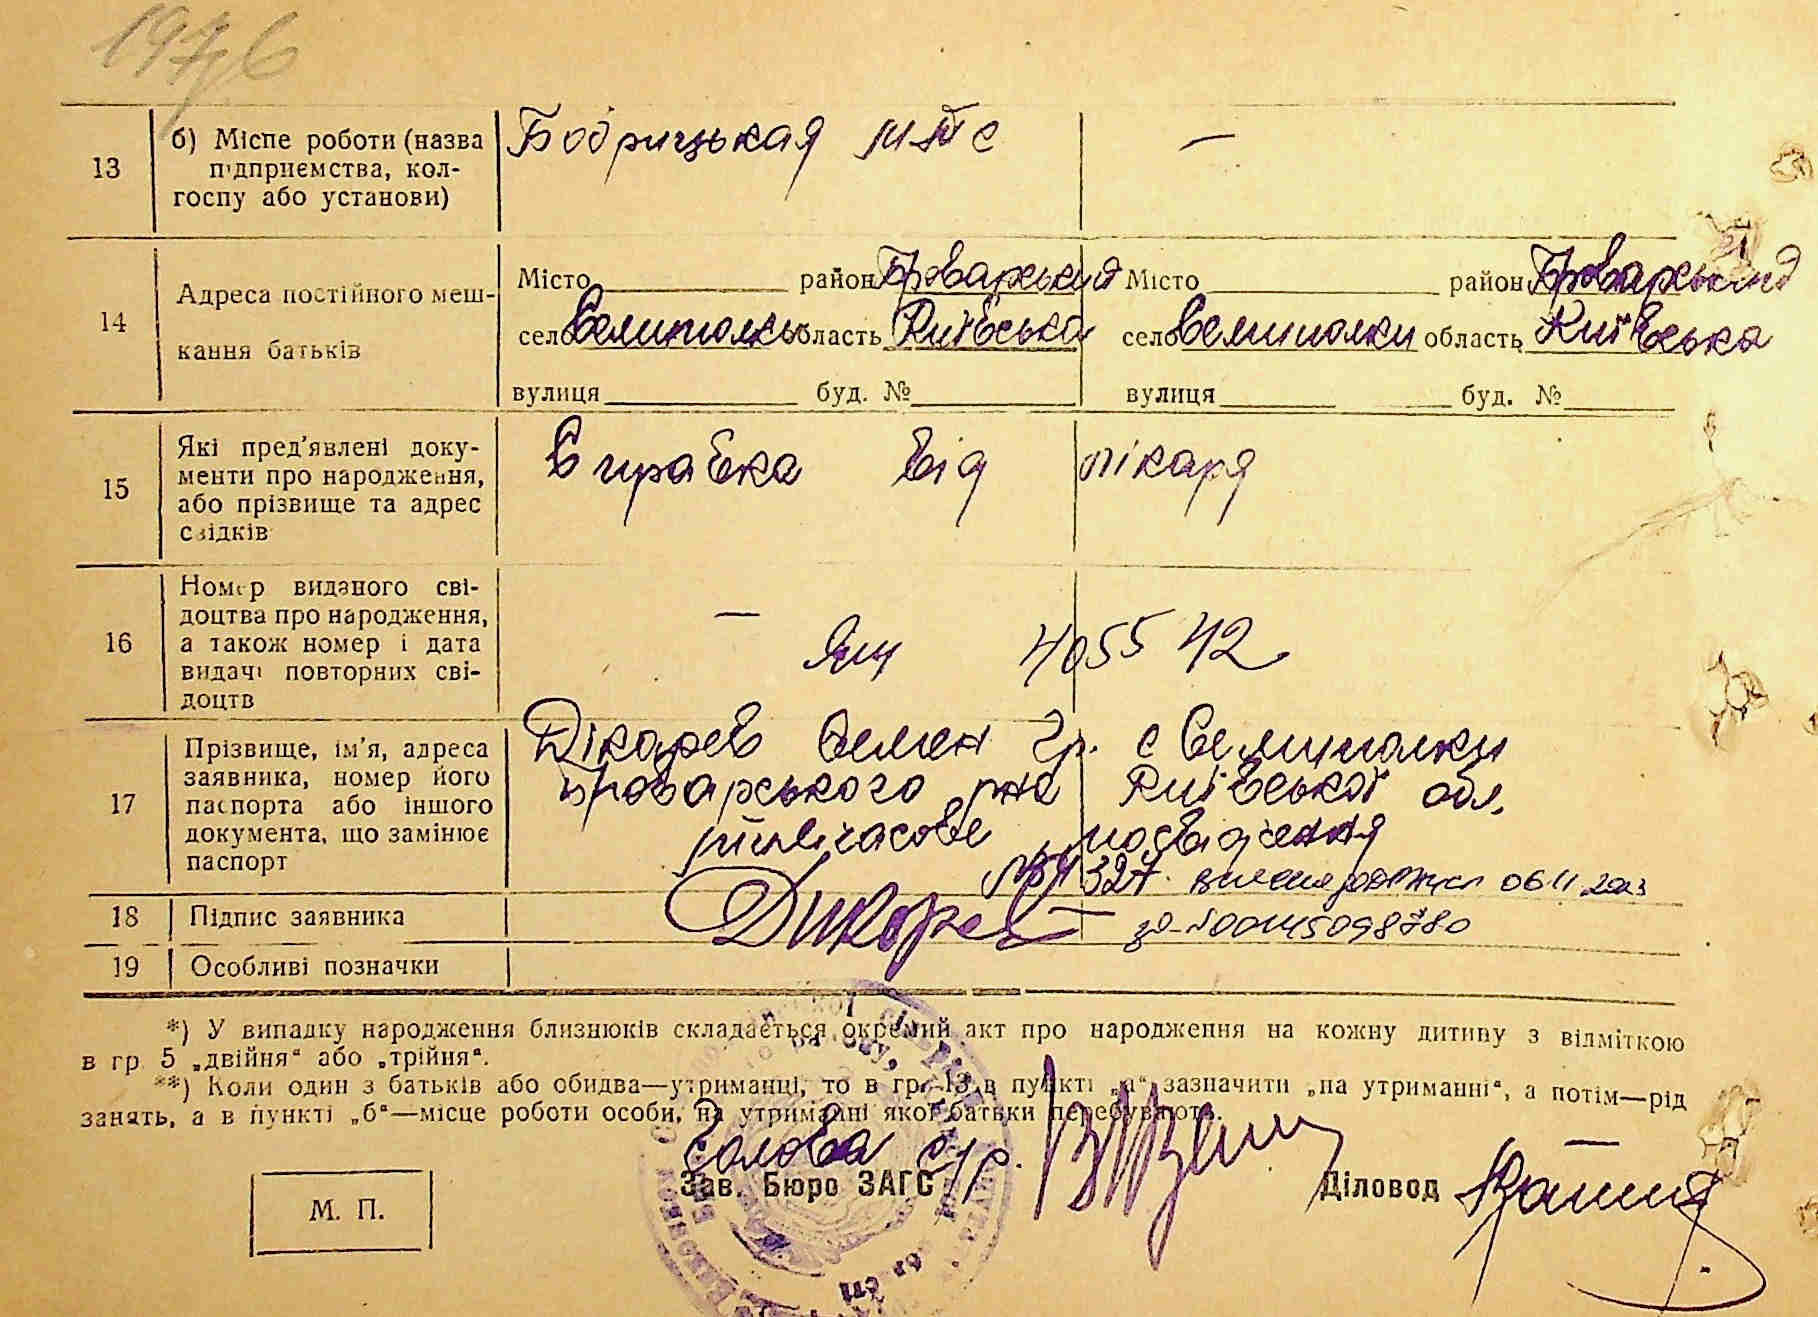 1976
13
б) Місце роботи (назва
підприємства, кол-
госпу або установи)
Бобрицькая МТС
—
14
Адреса постійного меш-
кання батьків
Місто район Броварський
село Велиполки область Київська
вулиця буд. №
Місто район Броварський
село Велиполки область Київська
вулиця буд. №
15
Які пред'явлені доку-
менти про народження,
або прізвище та адрес
свідків
Справка від лікаря
16
Номер виданого сві-
доцтва про народження,
а також номер і дата
видачі повторних сві-
доцтв
—
4055 42
17
Прізвище, ім'я, адреса
заявника, номер його
паспорта або іншого
документа, що замінює
паспорт
Дікарев Семен Гр. с Велиполки
Броварського р-на Київської обл.
тимчасове посвідчення
327. 06.11.2023
18
Підпис заявника
Дикарев
00045098780
19
Особливі позначки
*) У випадку народження близнюків складається окремий акт про народження на кожну дитину з відміткою
в гр. 5 „двійня“ або „трійня“.
**) Коли один з батьків або обидва—утриманці, то в гр. 13 в пункті „а“ зазначити „на утриманні“, а потім—рід
занять, а в пункті „б“—місце роботи особи, на утриманні якої батьки перебувають.
Голова с/р.
Зав. Бюро ЗАГС
Діловод
М. П.